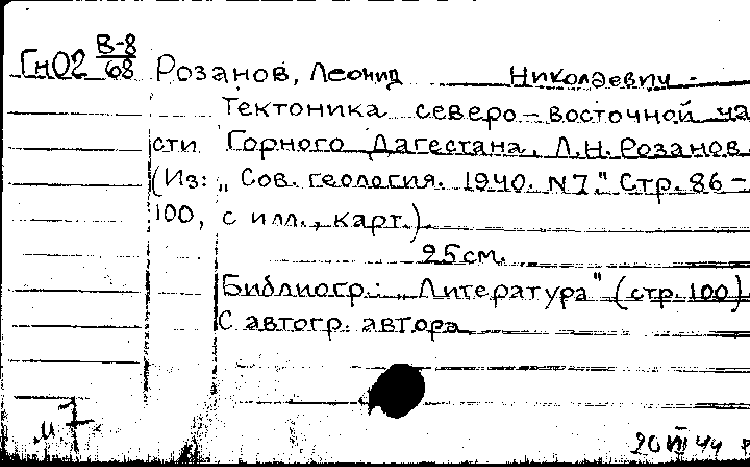 ГнО2 В-8/68 Розанов, Леонид Николаевич -
Тектоника северо-восточной ча
сти Горного Дагестана. Л.Н. Розанов
(Из: „Сов. геология. 1940. N7." Стр. 86-
100, с илл., карт.).
25 см.
Библиогр.: „Литература" (стр. 100)
С автогр. автора
м.7
20 VII 44